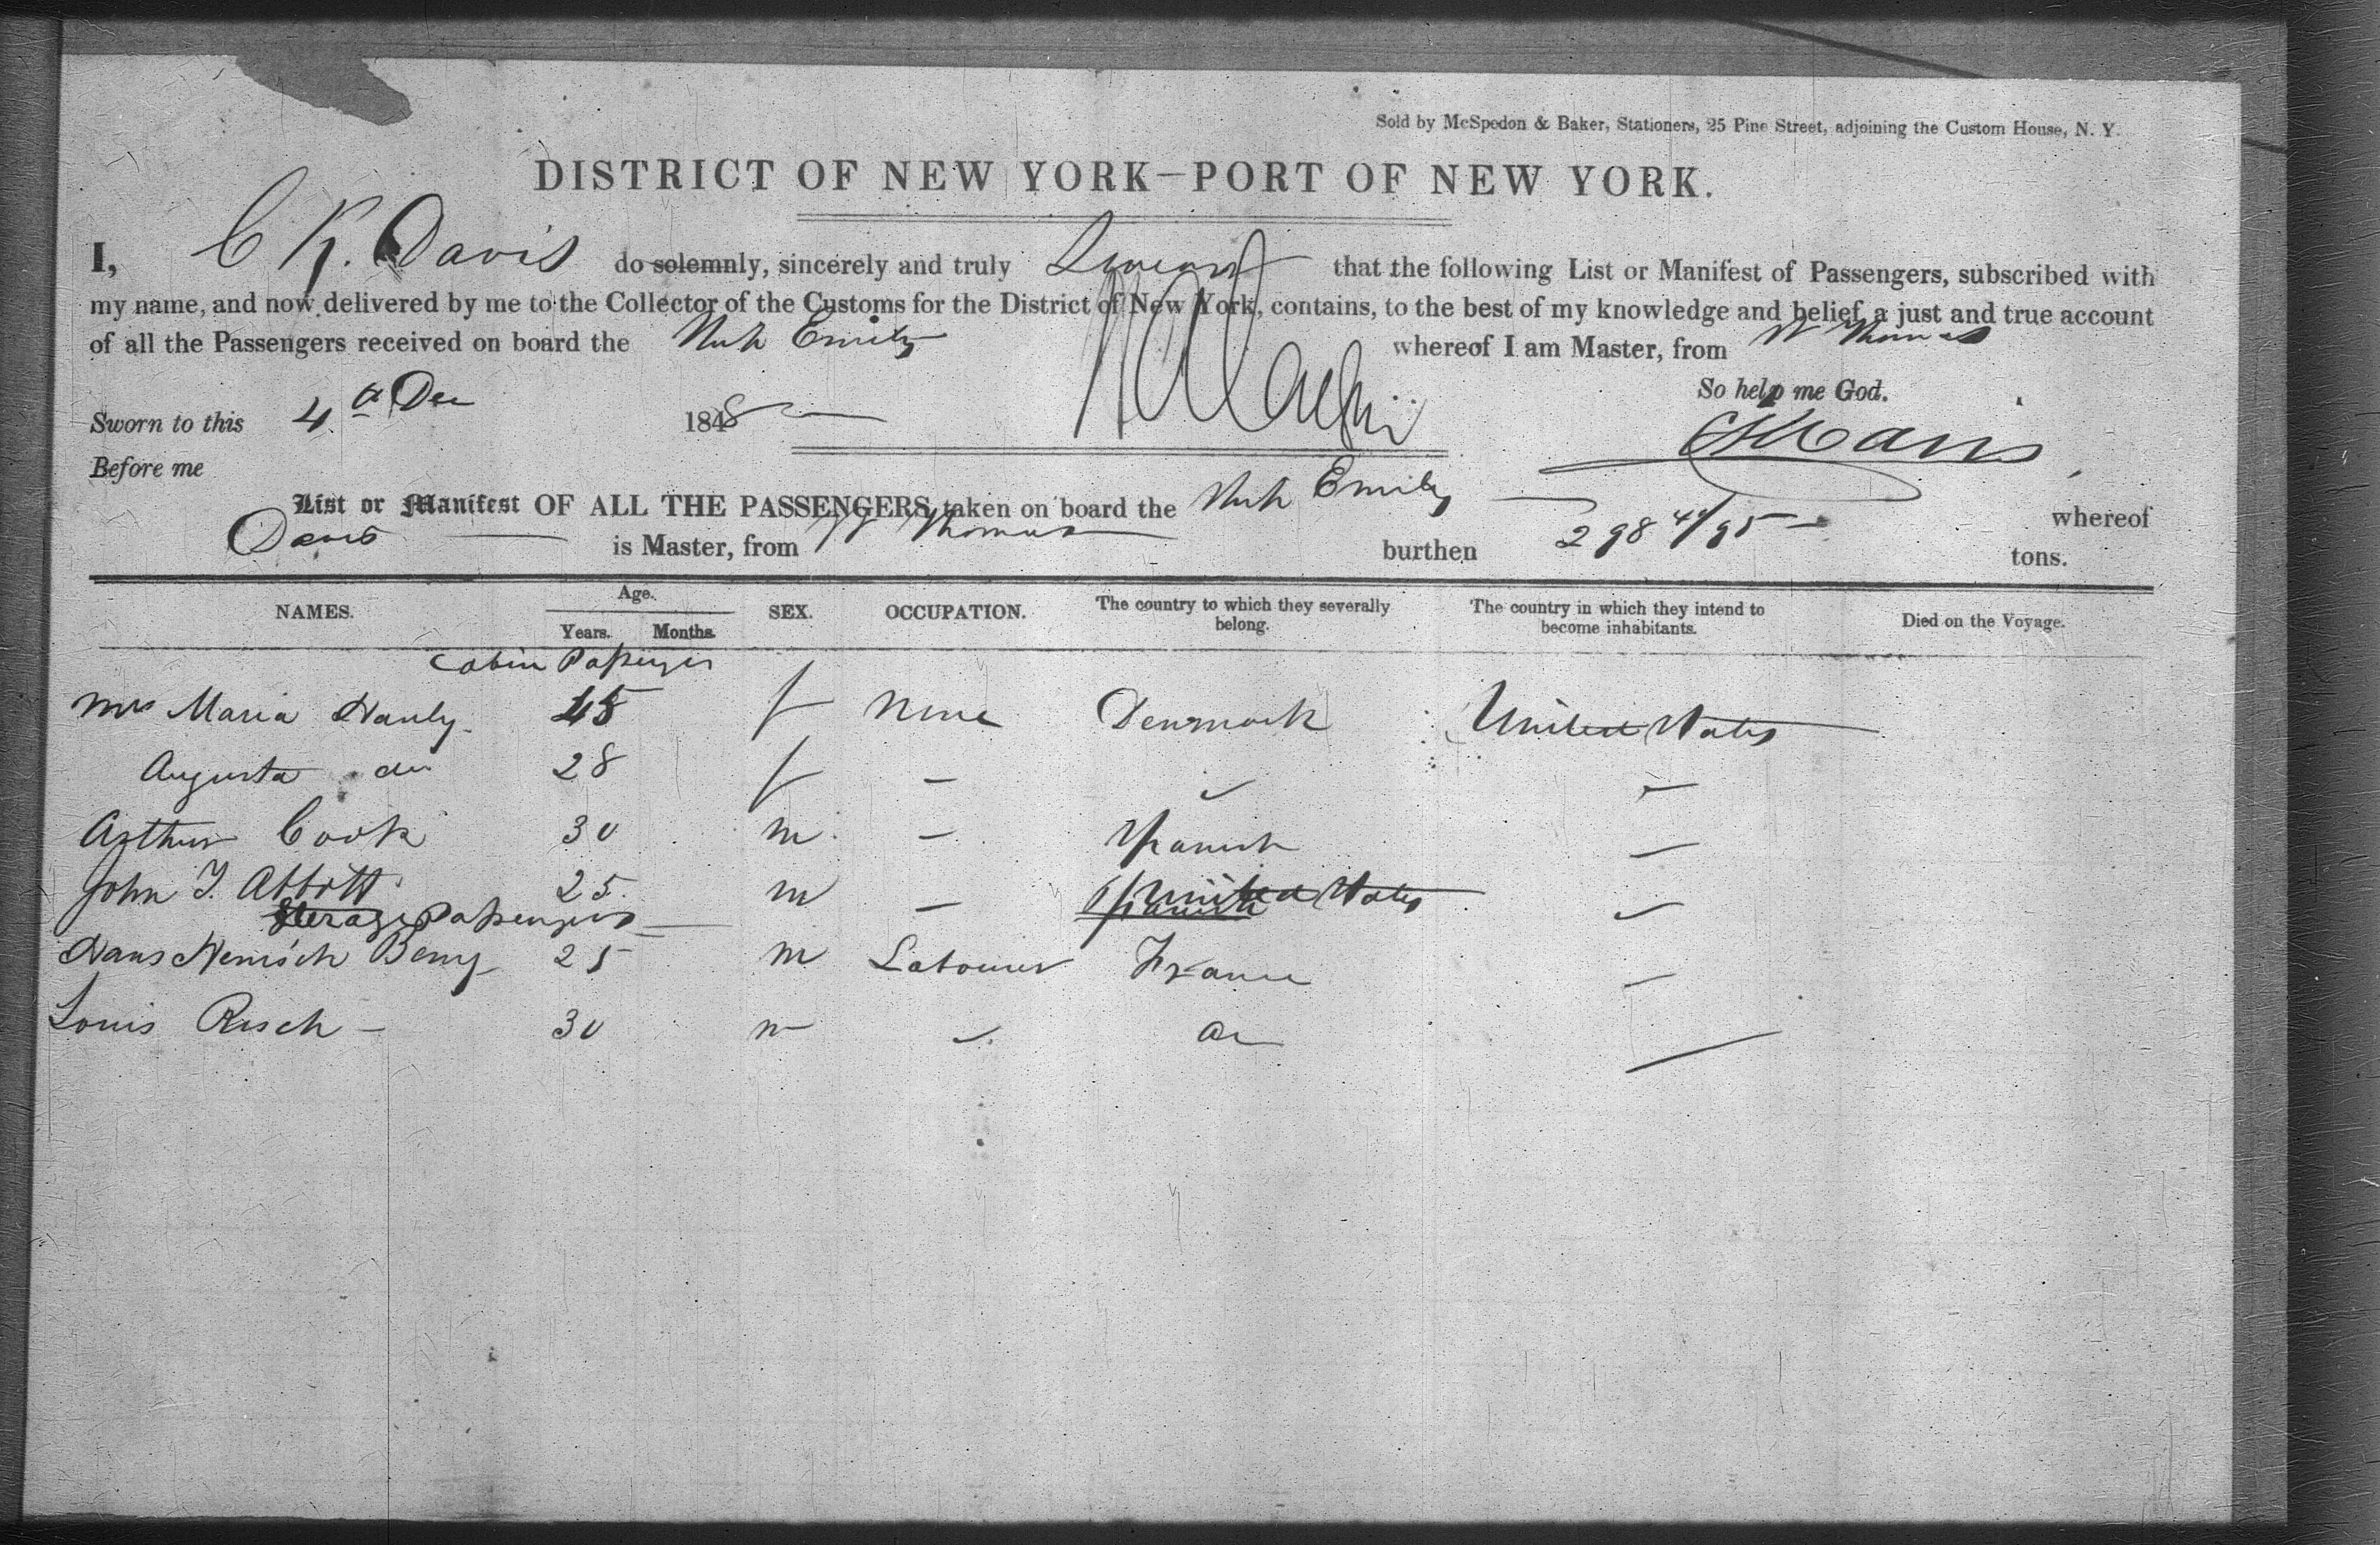 Sold by McSpedon & Baker, Stationers, 25 Pine Street, adjoining the Custom House, N. Y.
DISTRICT OF NEW YORK—PORT OF NEW YORK.
I, C K. Davis do solemnly, sincerely and truly Swear that the following List or Manifest of Passengers, subscribed with
my name, and now delivered by me to the Collector of the Customs for the District of New York, contains, to the best of my knowledge and belief, a just and true account
of all the Passengers received on board the Emily whereof I am Master, from St Thomas
So help me God.
Sworn to this 4th Dec 1848
CK Davis
Before me
List or Manifest OF ALL THE PASSENGERS, taken on board the Emily whereof
Davis is Master, from St Thomas burthen 298 44/95 tons.
NAMES. Age. SEX. OCCUPATION. The country to which they severally belong. The country in which they intend to become inhabitants. Died on the Voyage.
Years. Months.
Cabin Passenger
Mrs Maria 45 f None Denmark United States
Augusta do 28 f — ✓ —
Arthur Cook 30 m — Spanish —
John T. Abbott 25 m — United States ✓
Sterage Passengers
Hans Berry 25 m Labourer France —
Louis Risch - 30 m ✓ do